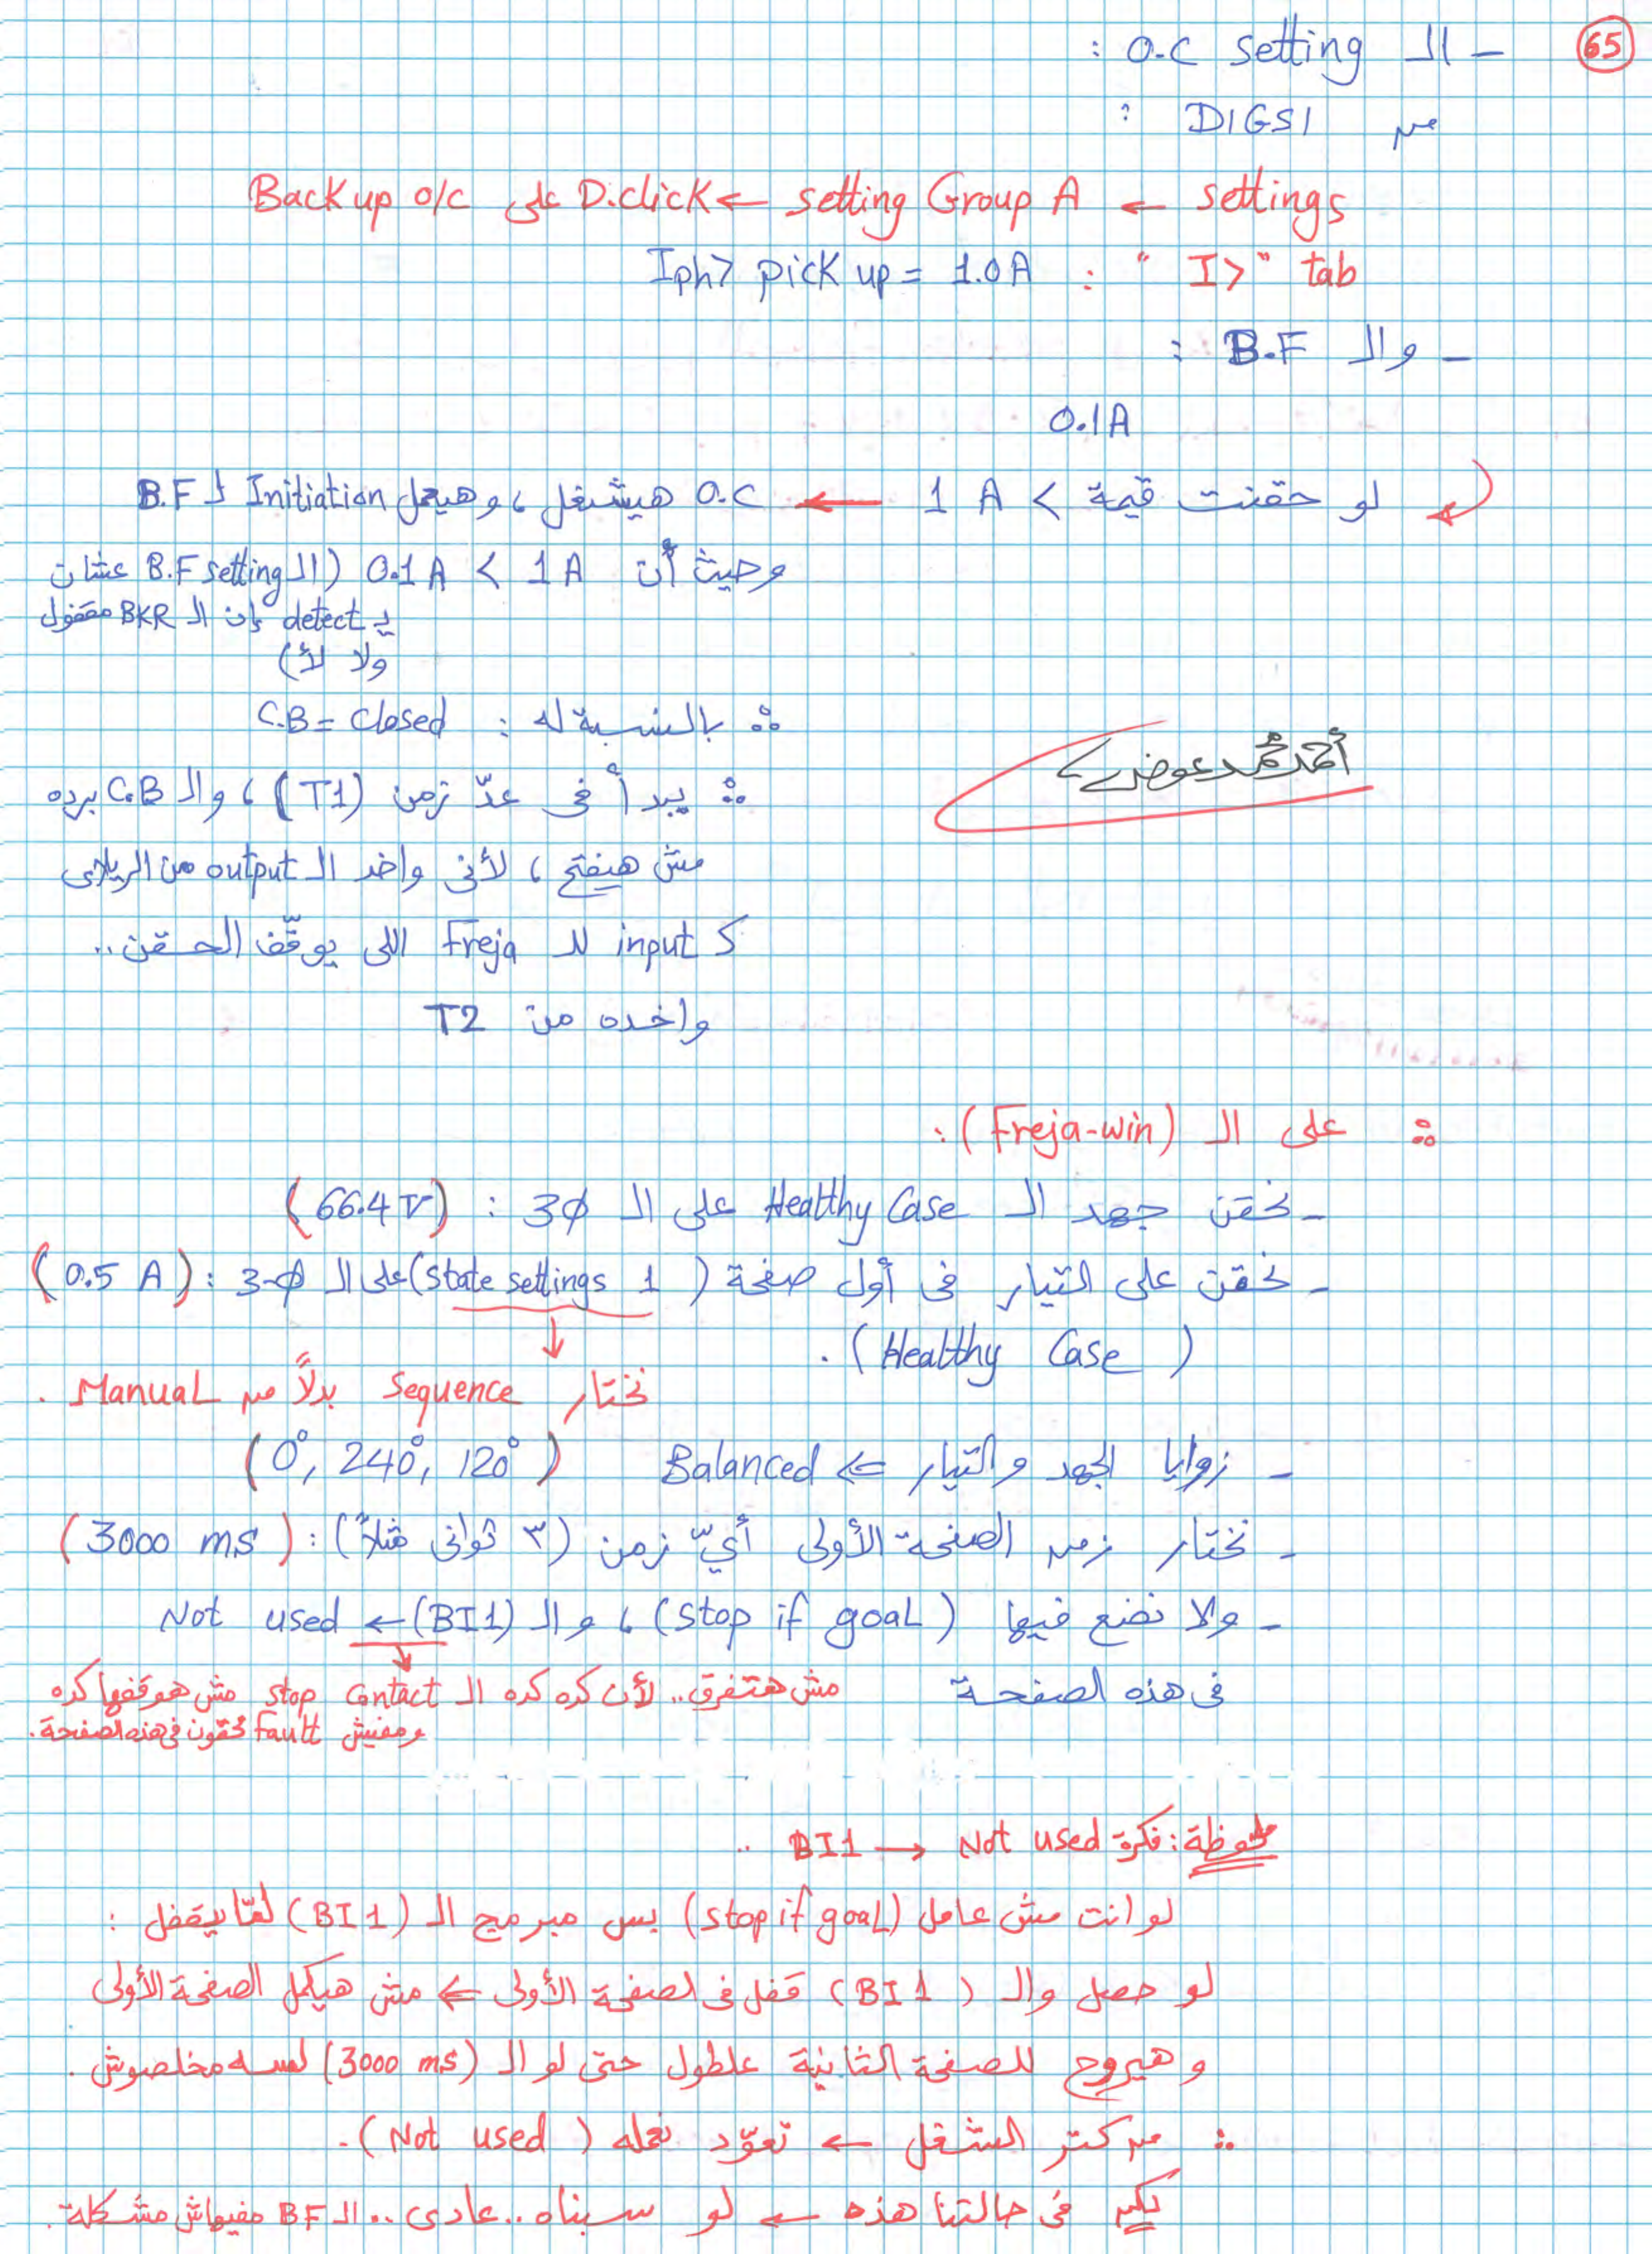 65
- الـ O.C setting :
من DIGSI :
settings ← setting Group A ← D.click على Back up o/c
"I>" tab : Iph> pick up = 1.0 A
- والـ B.F :
0.1A
لو حقنت قيمة > 1 A ← O.C هيشتغل ، وهيعمل Initiation لـ B.F
وحيث أن 1A > 0.1A (الـ B.F setting عشان
يـ detect إن الـ BKR مقفول
ولا لأ)
∴ بالنسبة له : C.B = closed
∴ يبدأ فى عدّ زمن (T1) ، والـ C.B برده
مش هيفتح ، لأنى واخد الـ output من الريلاى
كـ input للـ Freja اللى يوقّف الحقن..
واخده من T2
أحمد محمد عوض
∴ على الـ (Freja-win) :
- نحقن جهد الـ Healthy Case على الـ 3ϕ : (66.4 V)
- نحقن على التيار فى أول صفحة (state settings 1) على الـ 3-ϕ : (0.5 A)
(Healthy Case) .
نختار Sequence بدلاً من Manual .
- زوايا الجهد والتيار ⇐ Balanced (0°, 240°, 120°)
- نختار زمن الصفحة الأولى أيّ زمن (٣ ثوانى مثلاً) : (3000 ms)
- ولا نضع فيها (stop if goal) ، والـ (BI1) ← Not used
فى هذه الصفحة
مش هتفرق.. لأن كده كده الـ stop contact مش هوقفها كده
ومفيش Fault محقون فى هذه الصفحة.
ملحوظة : فكرة BI1 → Not used ..
لو انت مش عامل (stop if goal) بس مبرمج الـ (BI1) لمّا يقفل :
لو حصل والـ (BI1) قفل فى الصفحة الأولى ⇐ مش هيكمل الصفحة الأولى
وهيروح للصفحة الثانية علطول حتى لو الـ (3000 ms) لسه مخلصوش .
∴ من كتر الشغل ← تعوّد نعمله (Not used) .
لكن فى حالتنا هذه ← لو سبناه .. عادى .. الـ BF مفيهاش مشكلة .